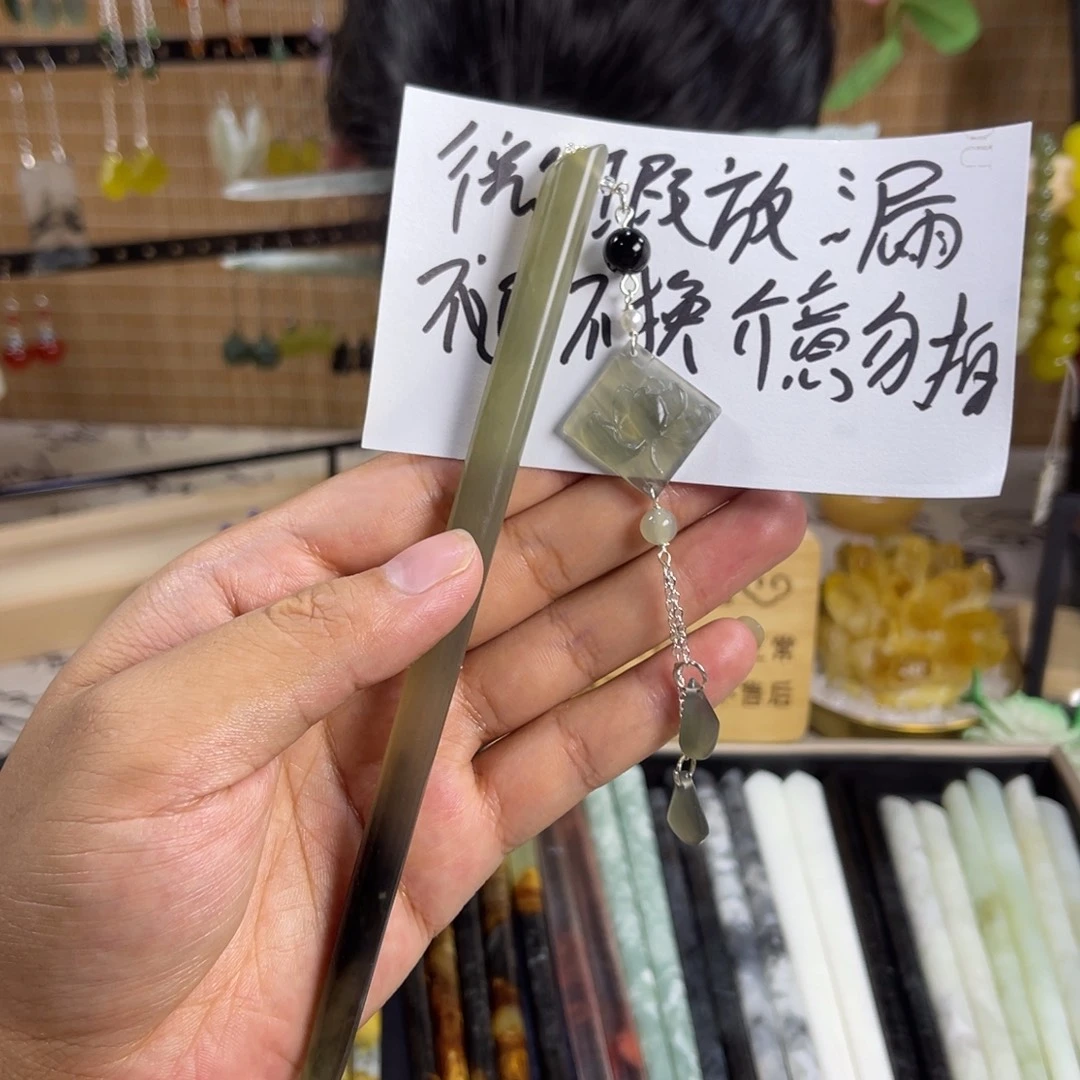 微瑕放漏
不退不换 介意勿拍
常
售后